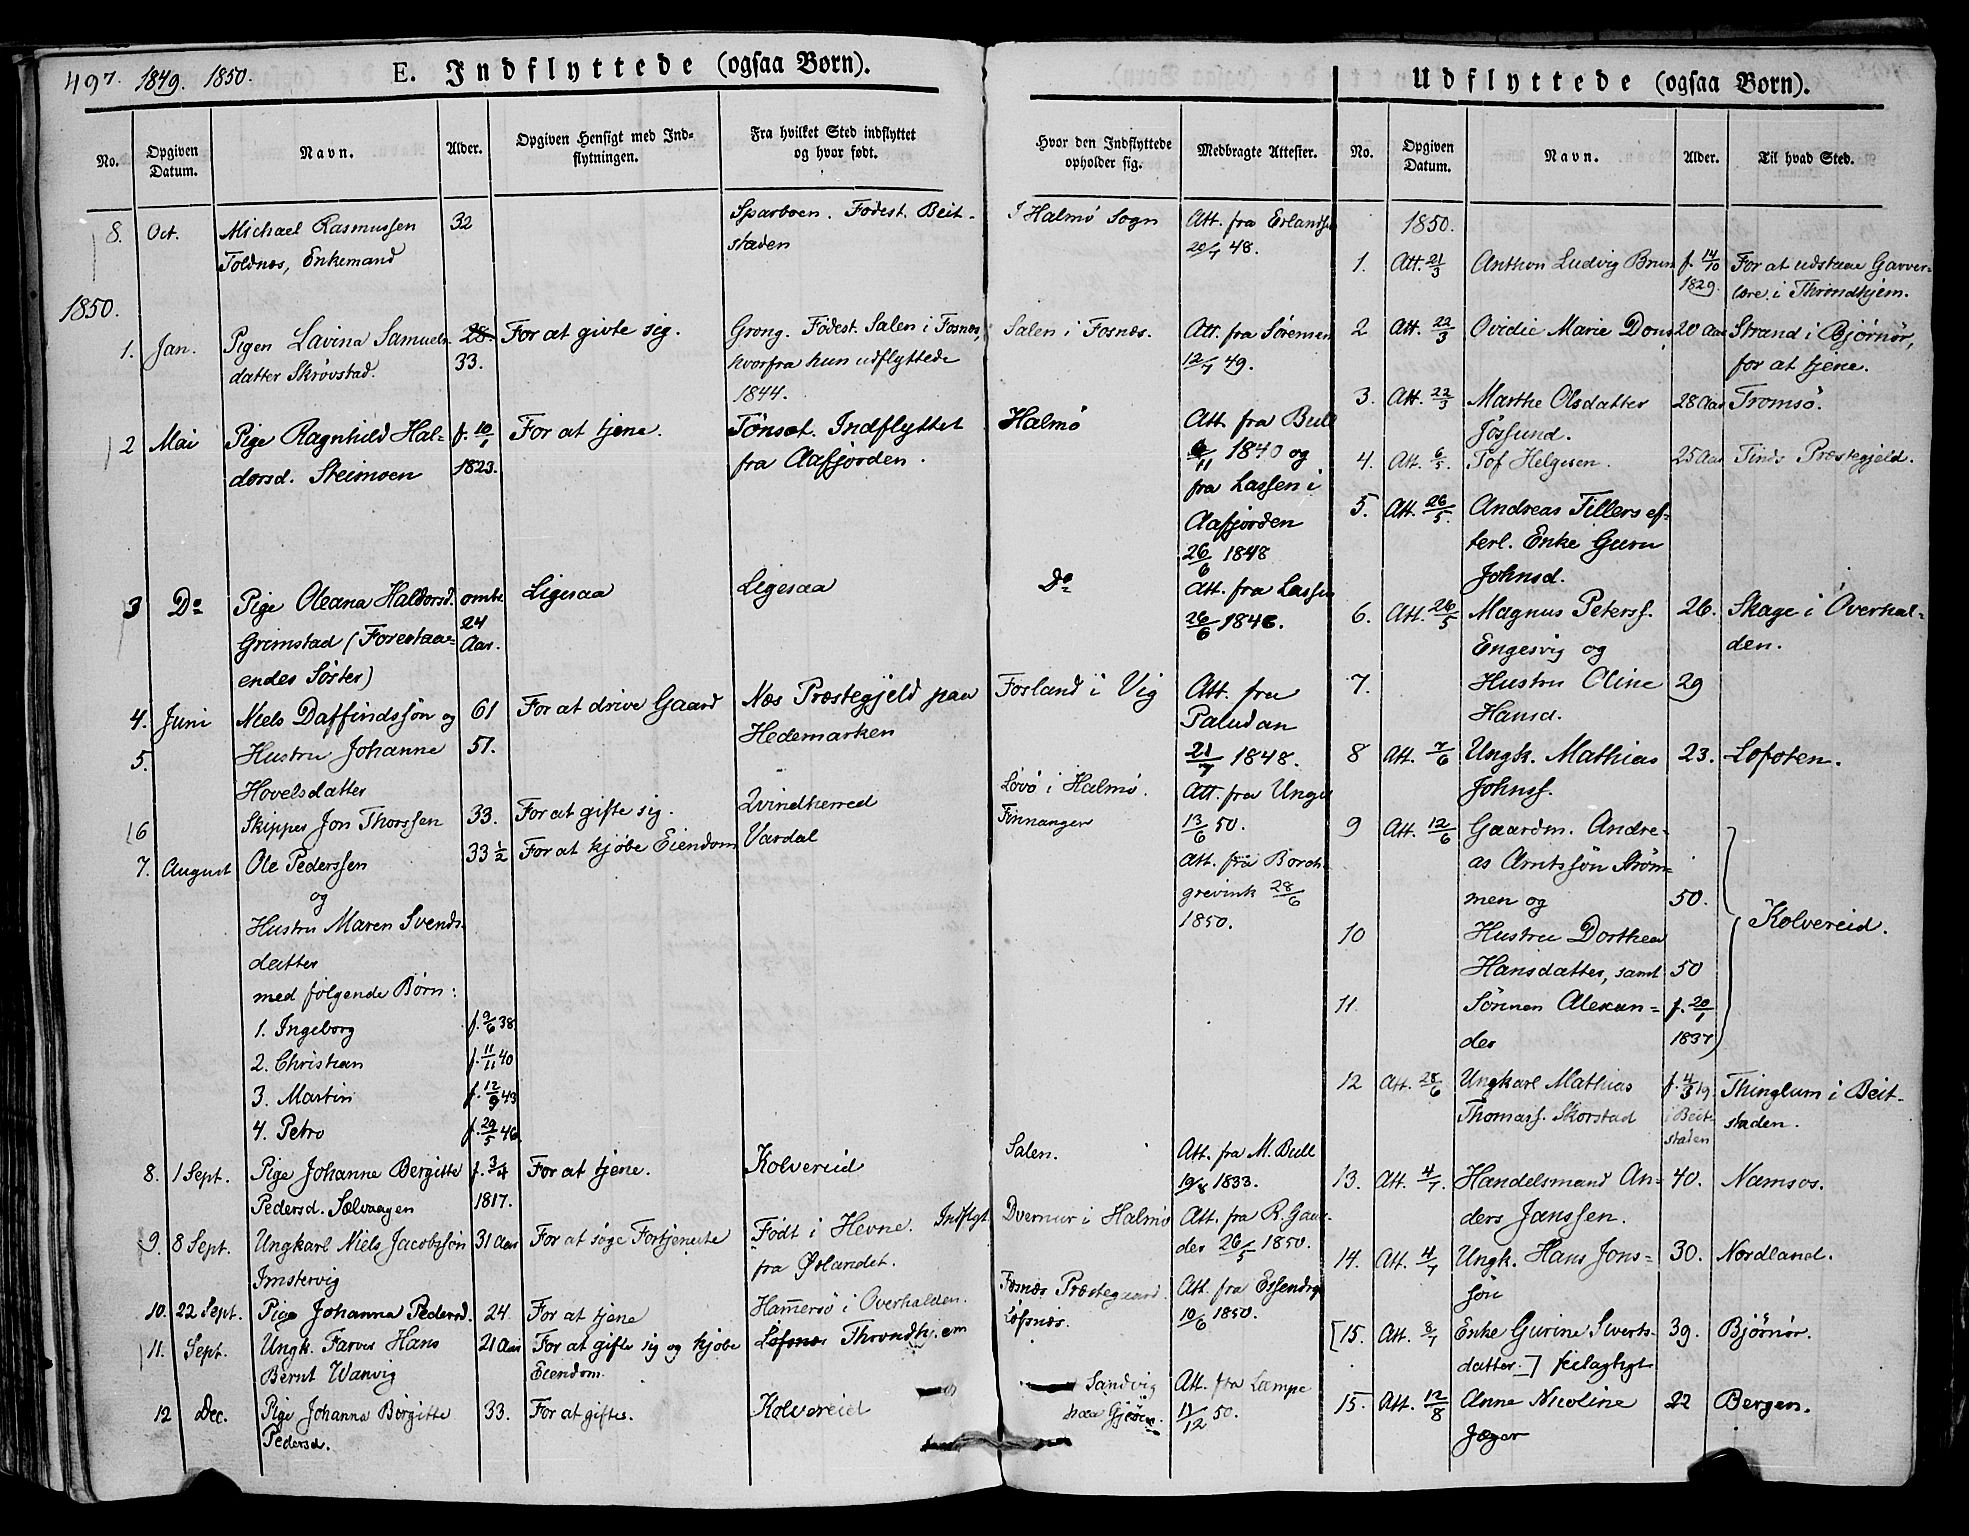 497. 1849. 1850.
E. Indflyttede (ogsaa Børn).
No.
Opgiven Datum.
Navn.
Alder.
Opgiven Hensigt med Ind-
flytningen.
Fra hvilket Sted indflyttet
og hvor født.
Hvor den Indflyttede
opholder sig.
Medbragte Attester.
8. Oct. Michael Rasmussen 32 Sparboen. Fødest. Beit- I Halmø Sogn Att. fra Erlandsen
Toldnæs, Enkemand staden 20/7 48.
1850.
1. Jan. Pigen Lavina Samuels- 28 For at givte sig. Grong. Fødest. Salen i Fosnæs, Salen i Fosnæs. Att. fra Sørensen
datter Skrøvstad. 33. hvorfra hun udflyttede 12/7 49.
1844.
2 Mai Pige Ragnhild Hal- f. 10/1 For at tjene. Tønset. Indflyttet Halmø Att. fra Bull
dorsd. Steimoen 1823. fra Aafjorden. 6/11 1840 og
fra Lassen i
Aafjorden
26/6 1848
3 Do Pige Oleana Haldorsd. omtr. Ligesaa Ligesaa Do Att. fra Lassen
Grimstad (Forestaa- 24 26/6 1848.
endes Søster) Aar.
4. Juni Niels Daffindssøn og 61 For at drive Gaard Næs Præstegjeld paa Forland i Vig Att. fra
5. Hustru Johanne 51. Hedemarken Paludan
Hovelsdatter 21/7 1848.
6 Skipper Jon Thorssen 33. For at gifte sig. Qvindherred Løvø i Halmø. Att. fra Unger
13/6 50.
7. August Ole Pederssen 33 1/2 For at kjøbe Eiendom Vardal Finnanger Att. fra Borch-
og grevink 28/6
Hustru Maren Svends- 1850.
datter
med følgende Børn:
1. Ingeborg f. 9/6 38
2. Christian f. 11/11 40
3. Martin f. 12/9 43
4. Petro f. 29/5 46
8. 1 Sept. Pige Johanne Bergitte f. 3/4 For at tjene. Kolvereid Salen. Att. fra M. Bull
Pedersd. Sælvaagen 1817. 19/8 1833.
9. 8 Sept. Ungkarl Niels Jacobssøn 31 Aar For at søge Fortjeneste Født i Hevne. Indflyt Dvernur i Halmø Att. fra R. Gaar-
Imstervig fra Ørlandet. der 26/5 1850.
10. 22 Sept. Pige Johanna Pedersd. 24 For at tjene Hammersø i Overhalden. Fosnæs Præstegaard. Att. fra Essendrop
10/6 1850.
11. Sept. Ungk. Farver Hans 21 Aar For at gifte sig og kjøbe Løfsnæs Throndhjem Løfsnæs.
Bernt Wanvig Eiendom.
12 Dec. Pige Johanna Bergitte 33. For at giftes. Kolvereid Sandvig Att. fra Lampe
Pedersd. paa Gjøen. 11/12 50.
Udflyttede (ogsaa Børn).
No.
Opgiven Datum.
Navn.
Alder.
Til hvad Sted.
1850.
1. Att. 21/3 Anthon Ludvig Brun f. 14/10 For at udstaae Garver-
1829. lære i Throndhjem.
2 Att. 22/3 Ovidie Marie Dons 20 Aar Strand i Bjørnør,
for at tjene.
3. Att. 22/3 Marthe Olsdatter 28 Aar Tromsø.
Jøssund.
4. Att. 6/5. Tof Helgesen. 25 Aar Tinds Præstegjeld.
5. Att. 26/5. Andreas Tillers ef-
terl. Enke Guru
Johnsd.
6. Att. 26/5 Magnus Peterss. 26. Skage i Overhal-
Engesvig og den.
7. Hustru Oline 29
Hansd.
8 Att. 7/6 Ungk. Mathias 23. Lofoten.
Johnss.
9 Att. 12/6 Gaardm. Andre-
as Arntssøn Strøm-
men og 50. Kolvereid.
10 Hustru Dorthea
Hansdatter, samt 50
11. Sønnen Alexan- f. 20/1
der 1837
12 Att. 28/6 Ungkarl Mathias f. 4/3 19. Thinglum i Beit-
Thomass. Skorstad i Beit- staden.
staden
13. Att. 4/7. Handelsmand An- 40. Namsos.
ders Janssen.
14. Att. 4/7 Ungk. Hans Jons- 30. Nordland.
søn
[15. Att. 8/7 Enke Gurine Siverts- 39. Bjørnør.
datter.] feilagtigt
15. Att. 12/8 Anne Nicoline 22 Bergen.
Jæger